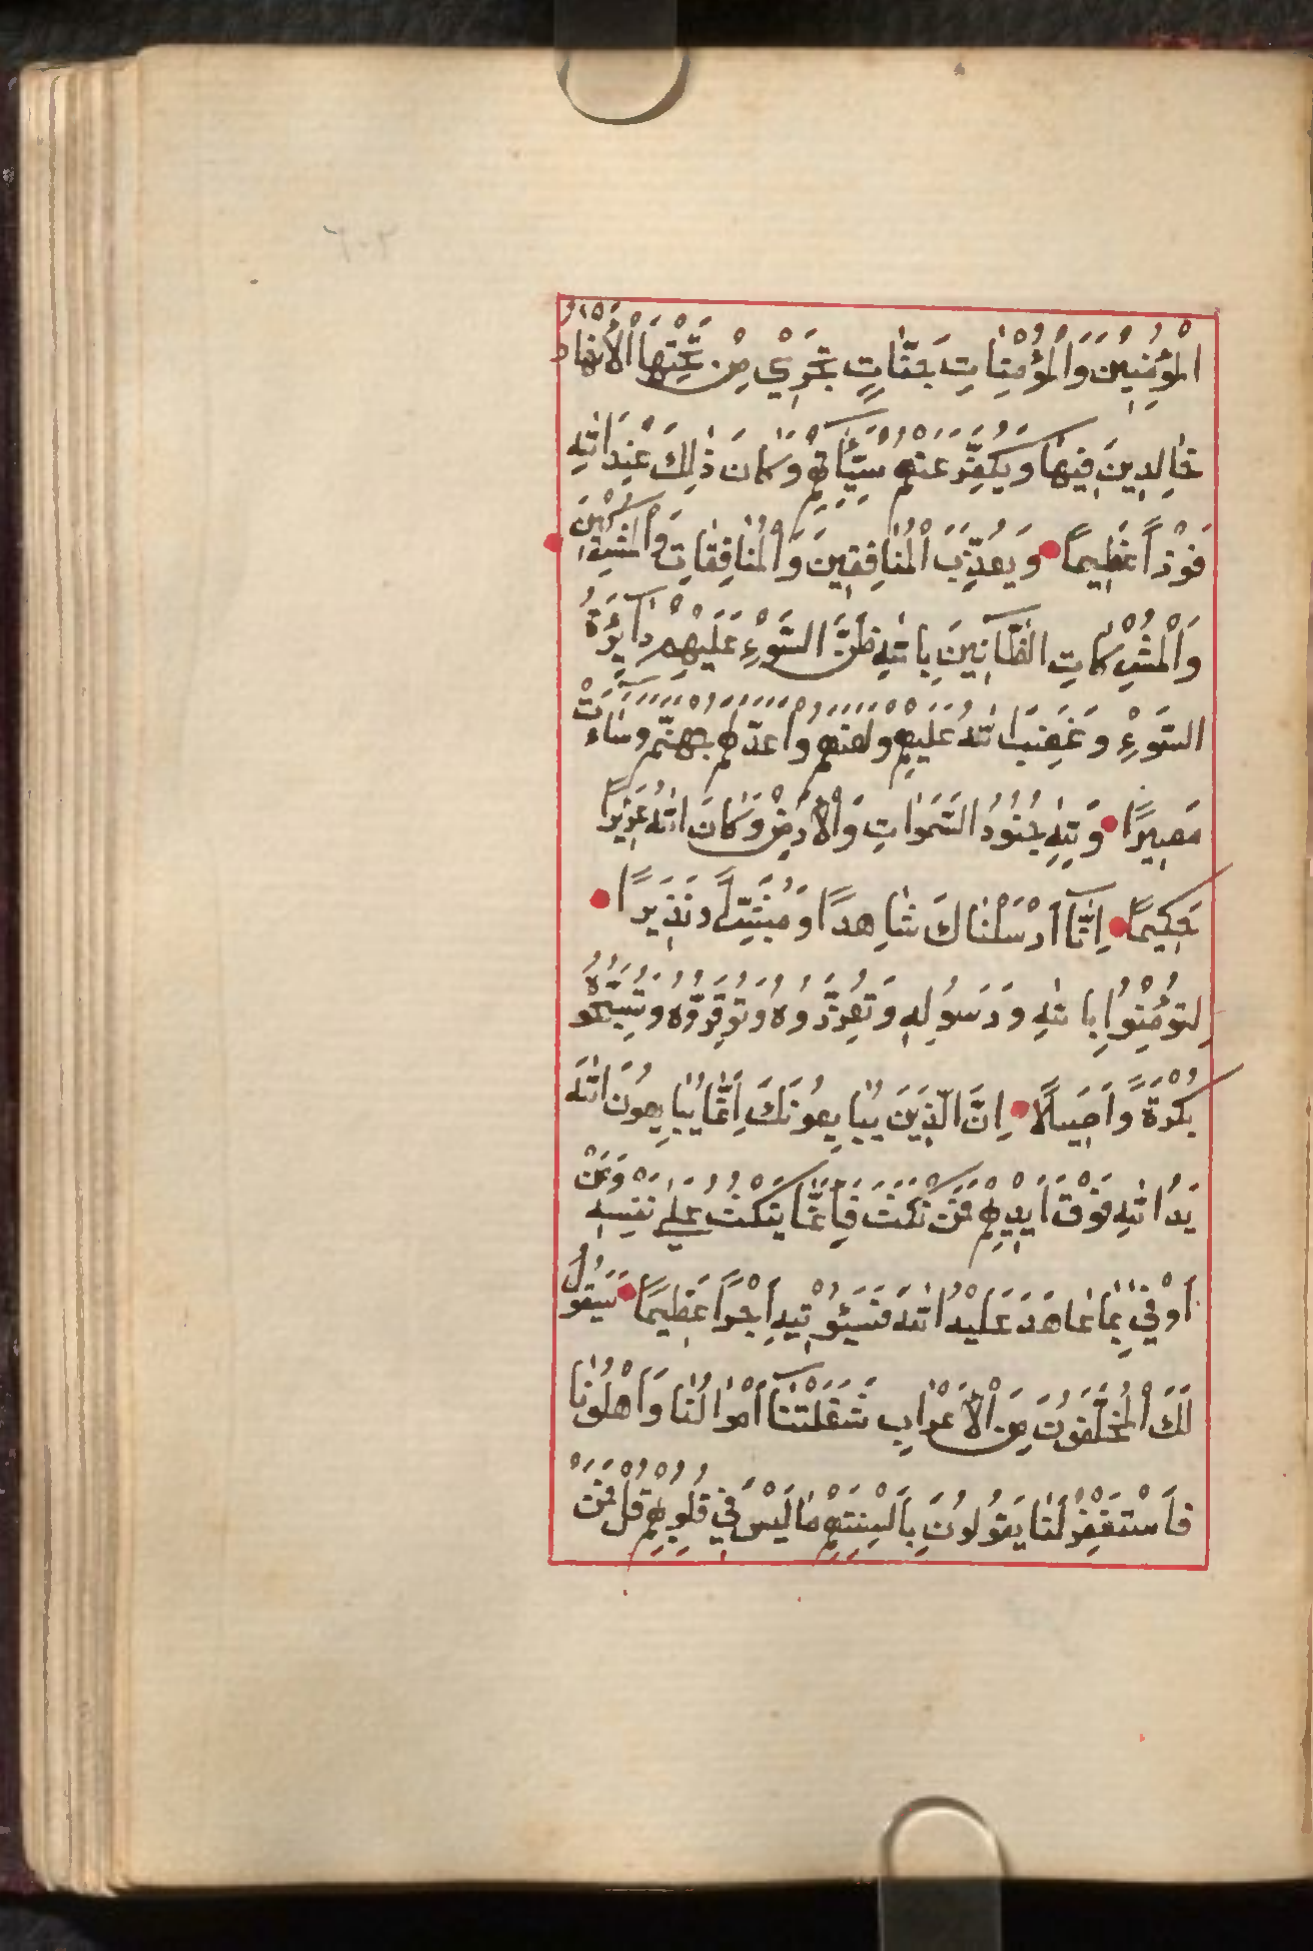 الْمُؤْمِنِينَ وَالْمُؤْمِنَاتِ جَنَّاتٍ تَجْرِي مِنْ تَحْتِهَا الْأَنْهَارُ
خَالِدِينَ فِيهَا وَيُكَفِّرَ عَنْهُمْ سَيِّآتِهِمْ وَكَانَ ذٰلِكَ عِنْدَ اللّٰهِ
فَوْزًا عَظِيمًا وَيُعَذِّبَ الْمُنَافِقِينَ وَالْمُنَافِقَاتِ وَالْمُشْرِكِينَ
وَالْمُشْرِكَاتِ الظَّانِّينَ بِاللّٰهِ ظَنَّ السَّوْءِ عَلَيْهِمْ دَائِرَةُ
السَّوْءِ وَغَضِبَ اللّٰهُ عَلَيْهِمْ وَلَعَنَهُمْ وَأَعَدَّ لَهُمْ جَهَنَّمَ وَسَاءَتْ
مَصِيرًا وَلِلّٰهِ جُنُودُ السَّمَوَاتِ وَالْأَرْضِ وَكَانَ اللّٰهُ عَزِيزًا
حَكِيمًا اِنَّآ اَرْسَلْنَاكَ شَاهِدًا وَمُبَشِّرًا وَنَذِيرًا
لِتُؤْمِنُوا بِاللّٰهِ وَرَسُولِهِ وَتُعَزِّرُوهُ وَتُوَقِّرُوهُ وَتُسَبِّحُوهُ
بُكْرَةً وَاَصِيلًا اِنَّ الَّذِينَ يُبَايِعُونَكَ اِنَّمَا يُبَايِعُونَ اللّٰهَ
يَدُ اللّٰهِ فَوْقَ اَيْدِيهِمْ فَمَنْ نَكَثَ فَاِنَّمَا يَنْكُثُ عَلٰى نَفْسِهِ وَمَنْ
اَوْفٰى بِمَا عَاهَدَ عَلَيْهُ اللّٰهَ فَسَيُؤْتِيهِ اَجْرًا عَظِيمًا سَيَقُولُ
لَكَ الْمُخَلَّفُونَ مِنَ الْاَعْرَابِ شَغَلَتْنَآ اَمْوَالُنَا وَاَهْلُونَا
فَاسْتَغْفِرْ لَنَا يَقُولُونَ بِاَلْسِنَتِهِمْ مَا لَيْسَ فِي قُلُوبِهِمْ قُلْ فَمَنْ